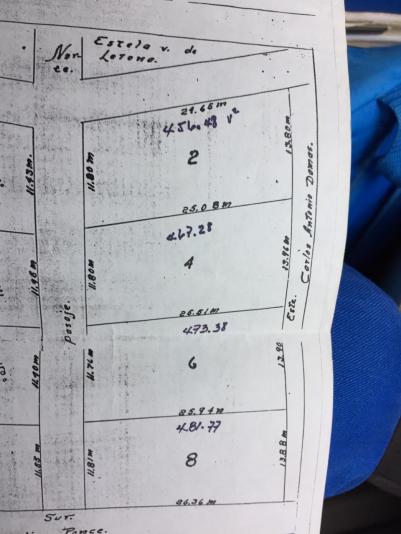 Nor
te.
Estela v. de
Letona.
24.65 m
456.48 V²
2
11.80 m
13.80 m
11.43 m.
25.08 m
467.28
4
11.80 m
13.96 m
11.48 m
Pasaje.
Este. Carlos Antonio Damas.
25.51 m
473.38
6
11.76 m
13.90
11.40 m
25.94 m
481.77
8
11.81 m
13.88 m
11.55 m
26.36 m
Sur.
Ponce.